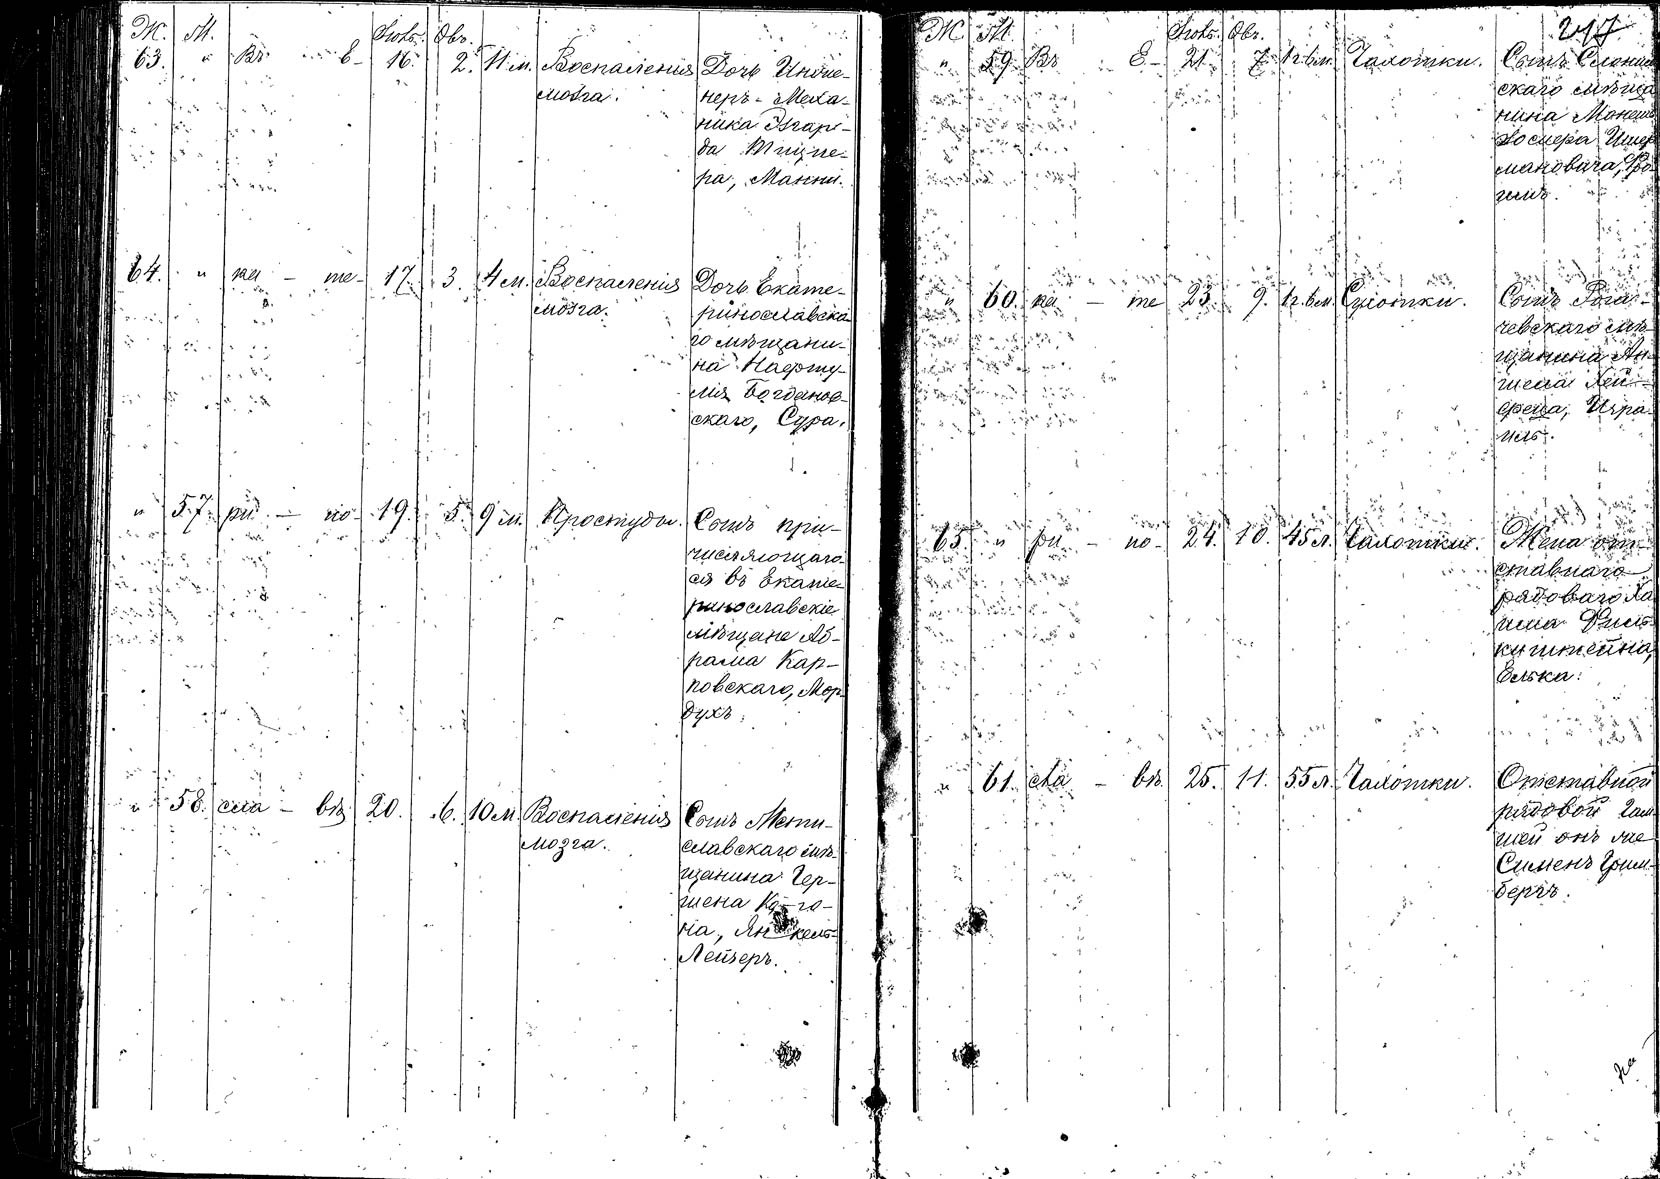 Ж. М. Іюль. Овъ.
63. " Въ Е- 16. 2. 11 м. Воспаленія Дочь Инже-
мозга. неръ-Меха-
ника Эдуар-
да
ра, Манни.
64. " ка - те- 17. 3. 4 м. Воспаленія Дочь Екате-
мозга. ринославска-
го мѣщани-
на Нафту-
лія Богданов-
скаго, Сура.
" 57. ри - но- 19. 5. 9 м. Простуды. Сынъ при-
числяющаго-
ся въ Екате-
ринославскіе
мѣщане Аб-
рама Кар-
повскаго, Мор-
духъ.
" 58. сла - вѣ 20. 6. 10 м. Воспаленія Сынъ Мсти-
мозга. славскаго мѣ-
щанина Гер-
шена Ка-га-
на, Янкель-
Лейзеръ.
217
Ж. М. Іюль. Овъ.
" 59. Въ Е- 21. 7. 1г.6м. Чахотки. Сынъ Слоним-
скаго мѣща-
нина

мановича,
.
" 60. ка - те 23. 9. 1г.6м. Сухотки. Сынъ Рога-
чевскаго мѣ-
щанина Ан-
шела Хей-
феца, Изра-
иль.
65. " ри - но- 24. 10. 45 л. Чахотки. Жена от-
ставнаго
рядоваго Ха-
има
Елька.
" 61. сла - вѣ 25. 11. 55 л. Чахотки. Отставной
рядовой
онъ же
Сименъ Грин-
бергъ.
на